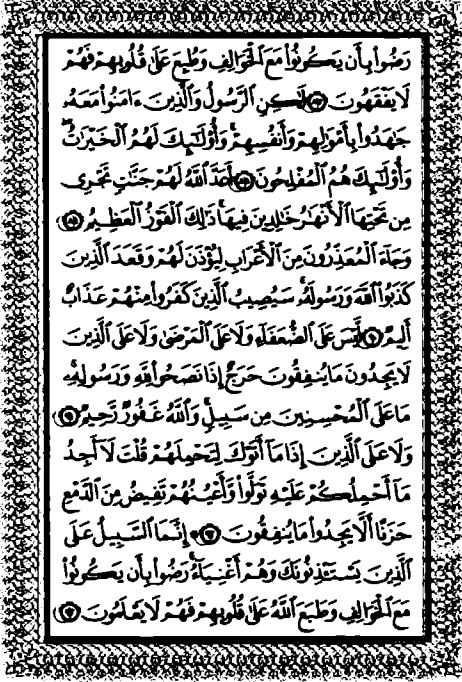 رَضُوا۟ بِأَن يَكُونُوا۟ مَعَ ٱلْخَوَالِفِ وَطُبِعَ عَلَىٰ قُلُوبِهِمْ فَهُمْ
لَا يَفْقَهُونَ ﴿٨٧﴾ لَٰكِنِ ٱلرَّسُولُ وَٱلَّذِينَ ءَامَنُوا۟ مَعَهُۥ
جَٰهَدُوا۟ بِأَمْوَٰلِهِمْ وَأَنفُسِهِمْ ۚ وَأُو۟لَٰٓئِكَ لَهُمُ ٱلْخَيْرَٰتُ ۖ
وَأُو۟لَٰٓئِكَ هُمُ ٱلْمُفْلِحُونَ ﴿٨٨﴾ أَعَدَّ ٱللَّهُ لَهُمْ جَنَّٰتٍ تَجْرِى
مِن تَحْتِهَا ٱلْأَنْهَٰرُ خَٰلِدِينَ فِيهَا ۚ ذَٰلِكَ ٱلْفَوْزُ ٱلْعَظِيمُ ﴿٨٩﴾
وَجَآءَ ٱلْمُعَذِّرُونَ مِنَ ٱلْأَعْرَابِ لِيُؤْذَنَ لَهُمْ وَقَعَدَ ٱلَّذِينَ
كَذَبُوا۟ ٱللَّهَ وَرَسُولَهُۥ ۚ سَيُصِيبُ ٱلَّذِينَ كَفَرُوا۟ مِنْهُمْ عَذَابٌ
أَلِيمٌ ﴿٩٠﴾ لَّيْسَ عَلَى ٱلضُّعَفَآءِ وَلَا عَلَى ٱلْمَرْضَىٰ وَلَا عَلَى ٱلَّذِينَ
لَا يَجِدُونَ مَا يُنفِقُونَ حَرَجٌ إِذَا نَصَحُوا۟ لِلَّهِ وَرَسُولِهِۦ ۚ
مَا عَلَى ٱلْمُحْسِنِينَ مِن سَبِيلٍ ۚ وَٱللَّهُ غَفُورٌ رَّحِيمٌ ﴿٩١﴾
وَلَا عَلَى ٱلَّذِينَ إِذَا مَآ أَتَوْكَ لِتَحْمِلَهُمْ قُلْتَ لَآ أَجِدُ
مَآ أَحْمِلُكُمْ عَلَيْهِ تَوَلَّوا۟ وَّأَعْيُنُهُمْ تَفِيضُ مِنَ ٱلدَّمْعِ
حَزَنًا أَلَّا يَجِدُوا۟ مَا يُنفِقُونَ ﴿٩٢﴾ ۞ إِنَّمَا ٱلسَّبِيلُ عَلَى
ٱلَّذِينَ يَسْتَـْٔذِنُونَكَ وَهُمْ أَغْنِيَآءُ ۚ رَضُوا۟ بِأَن يَكُونُوا۟
مَعَ ٱلْخَوَالِفِ وَطَبَعَ ٱللَّهُ عَلَىٰ قُلُوبِهِمْ فَهُمْ لَا يَعْلَمُونَ ﴿٩٣﴾